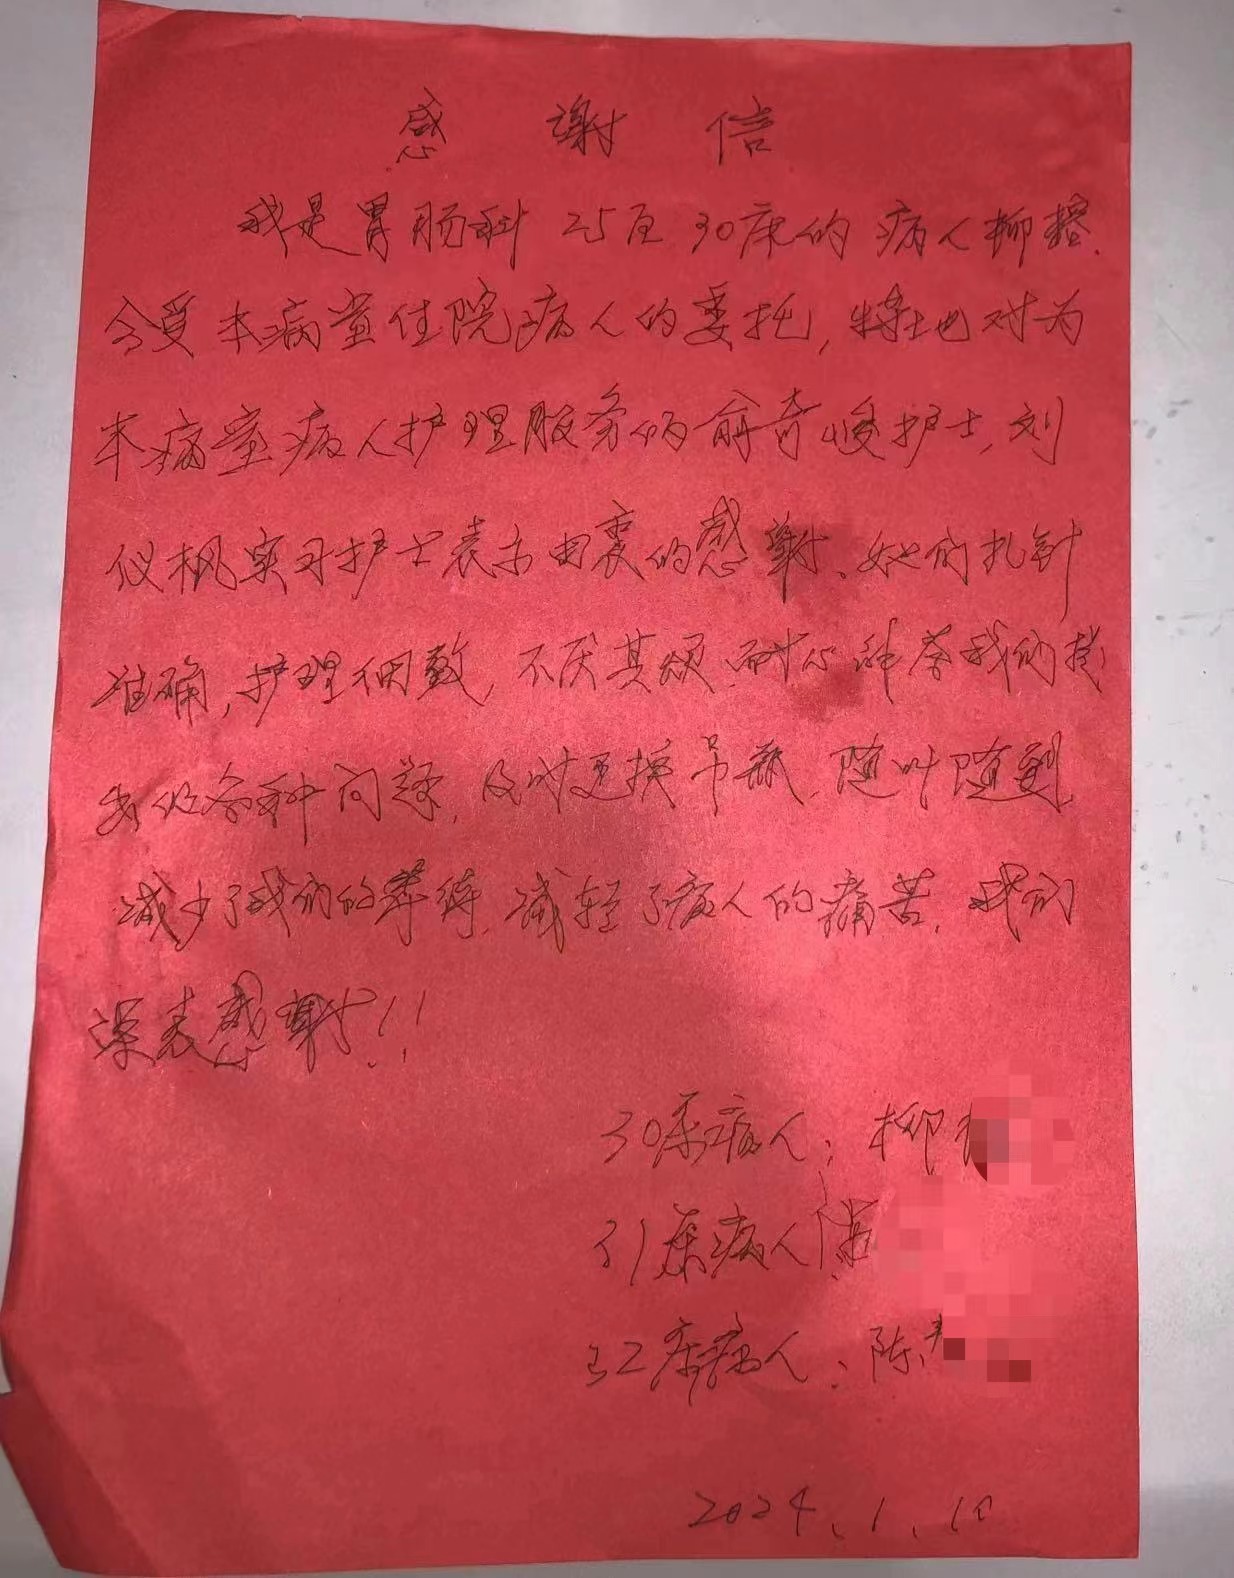 感谢信
我是胃肠科25至30床的病人柳
今受本病室住院病人的委托，特地对为
本病室病人护理服务的俞奇峻护士，刘
仪枫实习护士表示由衷的感谢、她们扎针
准确，护理细致，不厌其烦，耐心解答我们提
出的各种问题，及时更换吊瓶，随叫随到，
减少了我们的等待，减轻了病人的痛苦，我们
深表感谢！！
30床病人：柳
31床病人
32床病人：陈
2024.1.10